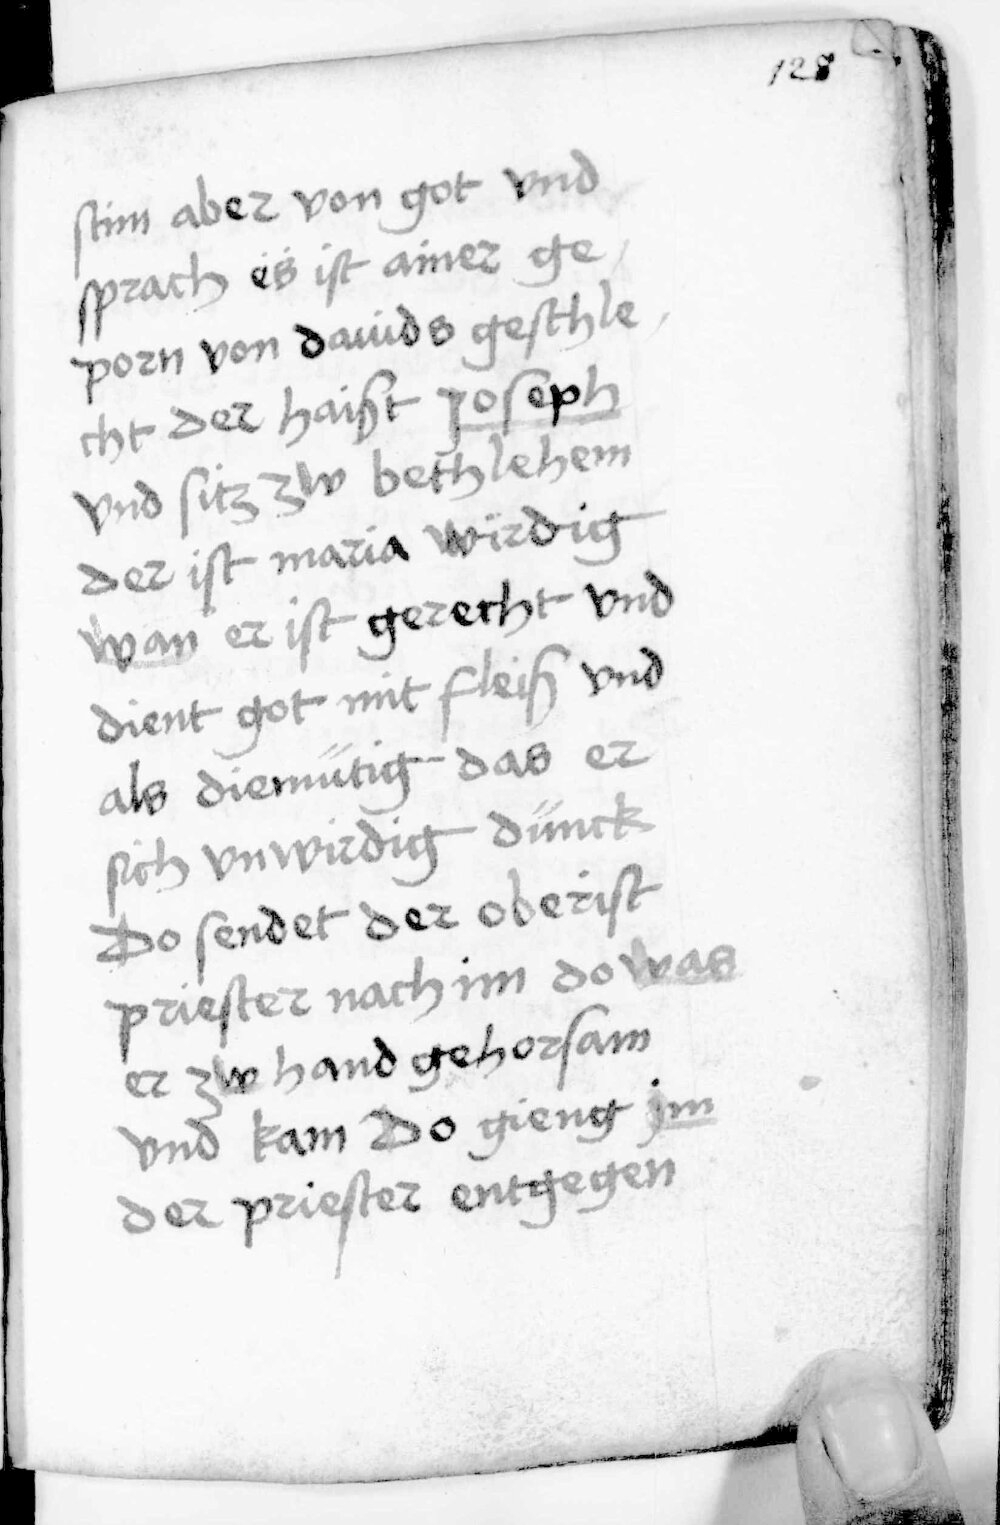 128
stim aber von got vnd
sprach es ist ainer ge
porn von dauids geschle
cht der haißt Joseph
vnd sitz zw bethlehem
der ist maria wirdig
wan er ist gerecht vnd
dient got mit fleiß vnd
als diemütig das er
sich vnwirdig dünck
Do sendet der oberist
priester nach im do was
er zw hand gehorsam
vnd kam Do gieng jm
der priester entgegen